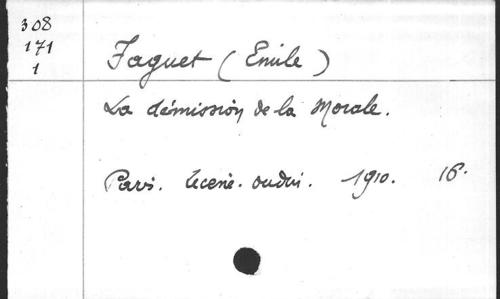 308
171
1
Faguet (Emile)
La démission de la Morale.
Paris. Lecène. oudin. 1910. 16.